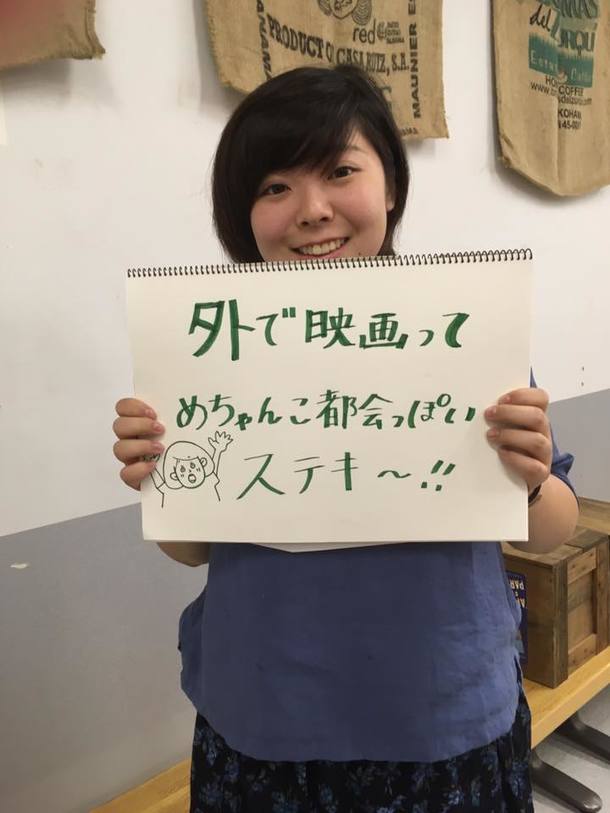 red
PRODUCT OF CASA RUIZ, S.A.
MAUNIER
del
HO COFFEE
www.
外で映画って
めちゃんこ都会っぽい
ステキ〜!!